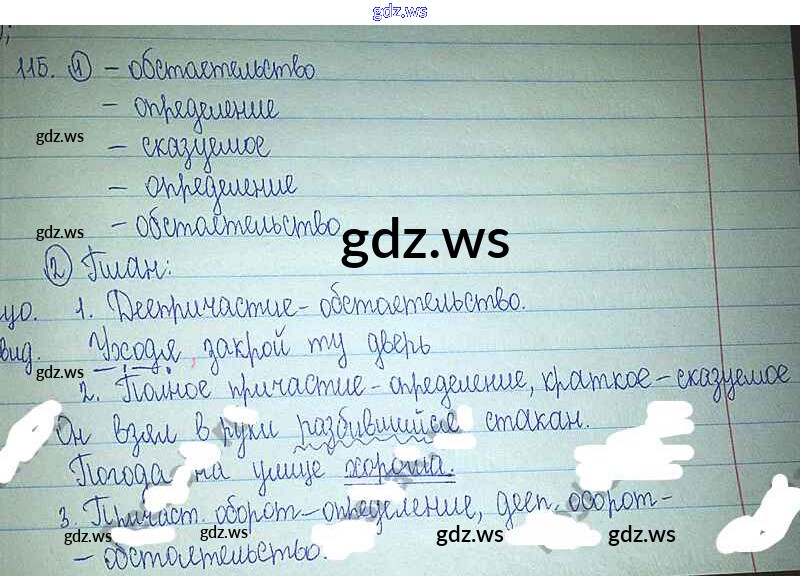 gdz.ws
115. 1 - обстоятельство
- определение
gdz.ws
- сказуемое
- определение
gdz.ws
- обстоятельство
gdz.ws
2 План:
1. Деепричастие - обстоятельство.
вид. Уходя, закрой ту дверь
gdz.ws
2. Полное причастие - определение, краткое - сказуемое
Он взял в руки разбившийся стакан.
Погода на улице хороша.
3. Причаст. оборот - определение, дееп. оборот -
gdz.ws gdz.ws gdz.ws gdz.ws
- обстоятельство.